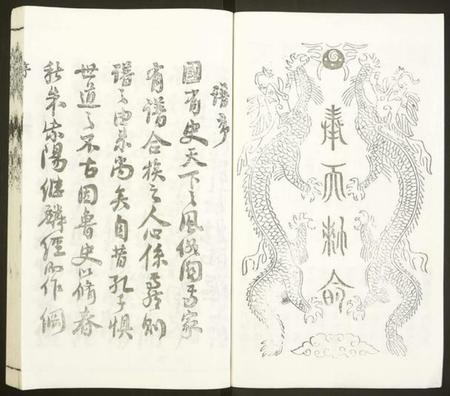 奉天勅命
譜序
國有史天下之風俗因焉家
有譜合族之人心係焉然則
譜之由來尚矣自昔孔子懼
世道之不古因魯史以修春
秋朱紫陽继麟經而作綱